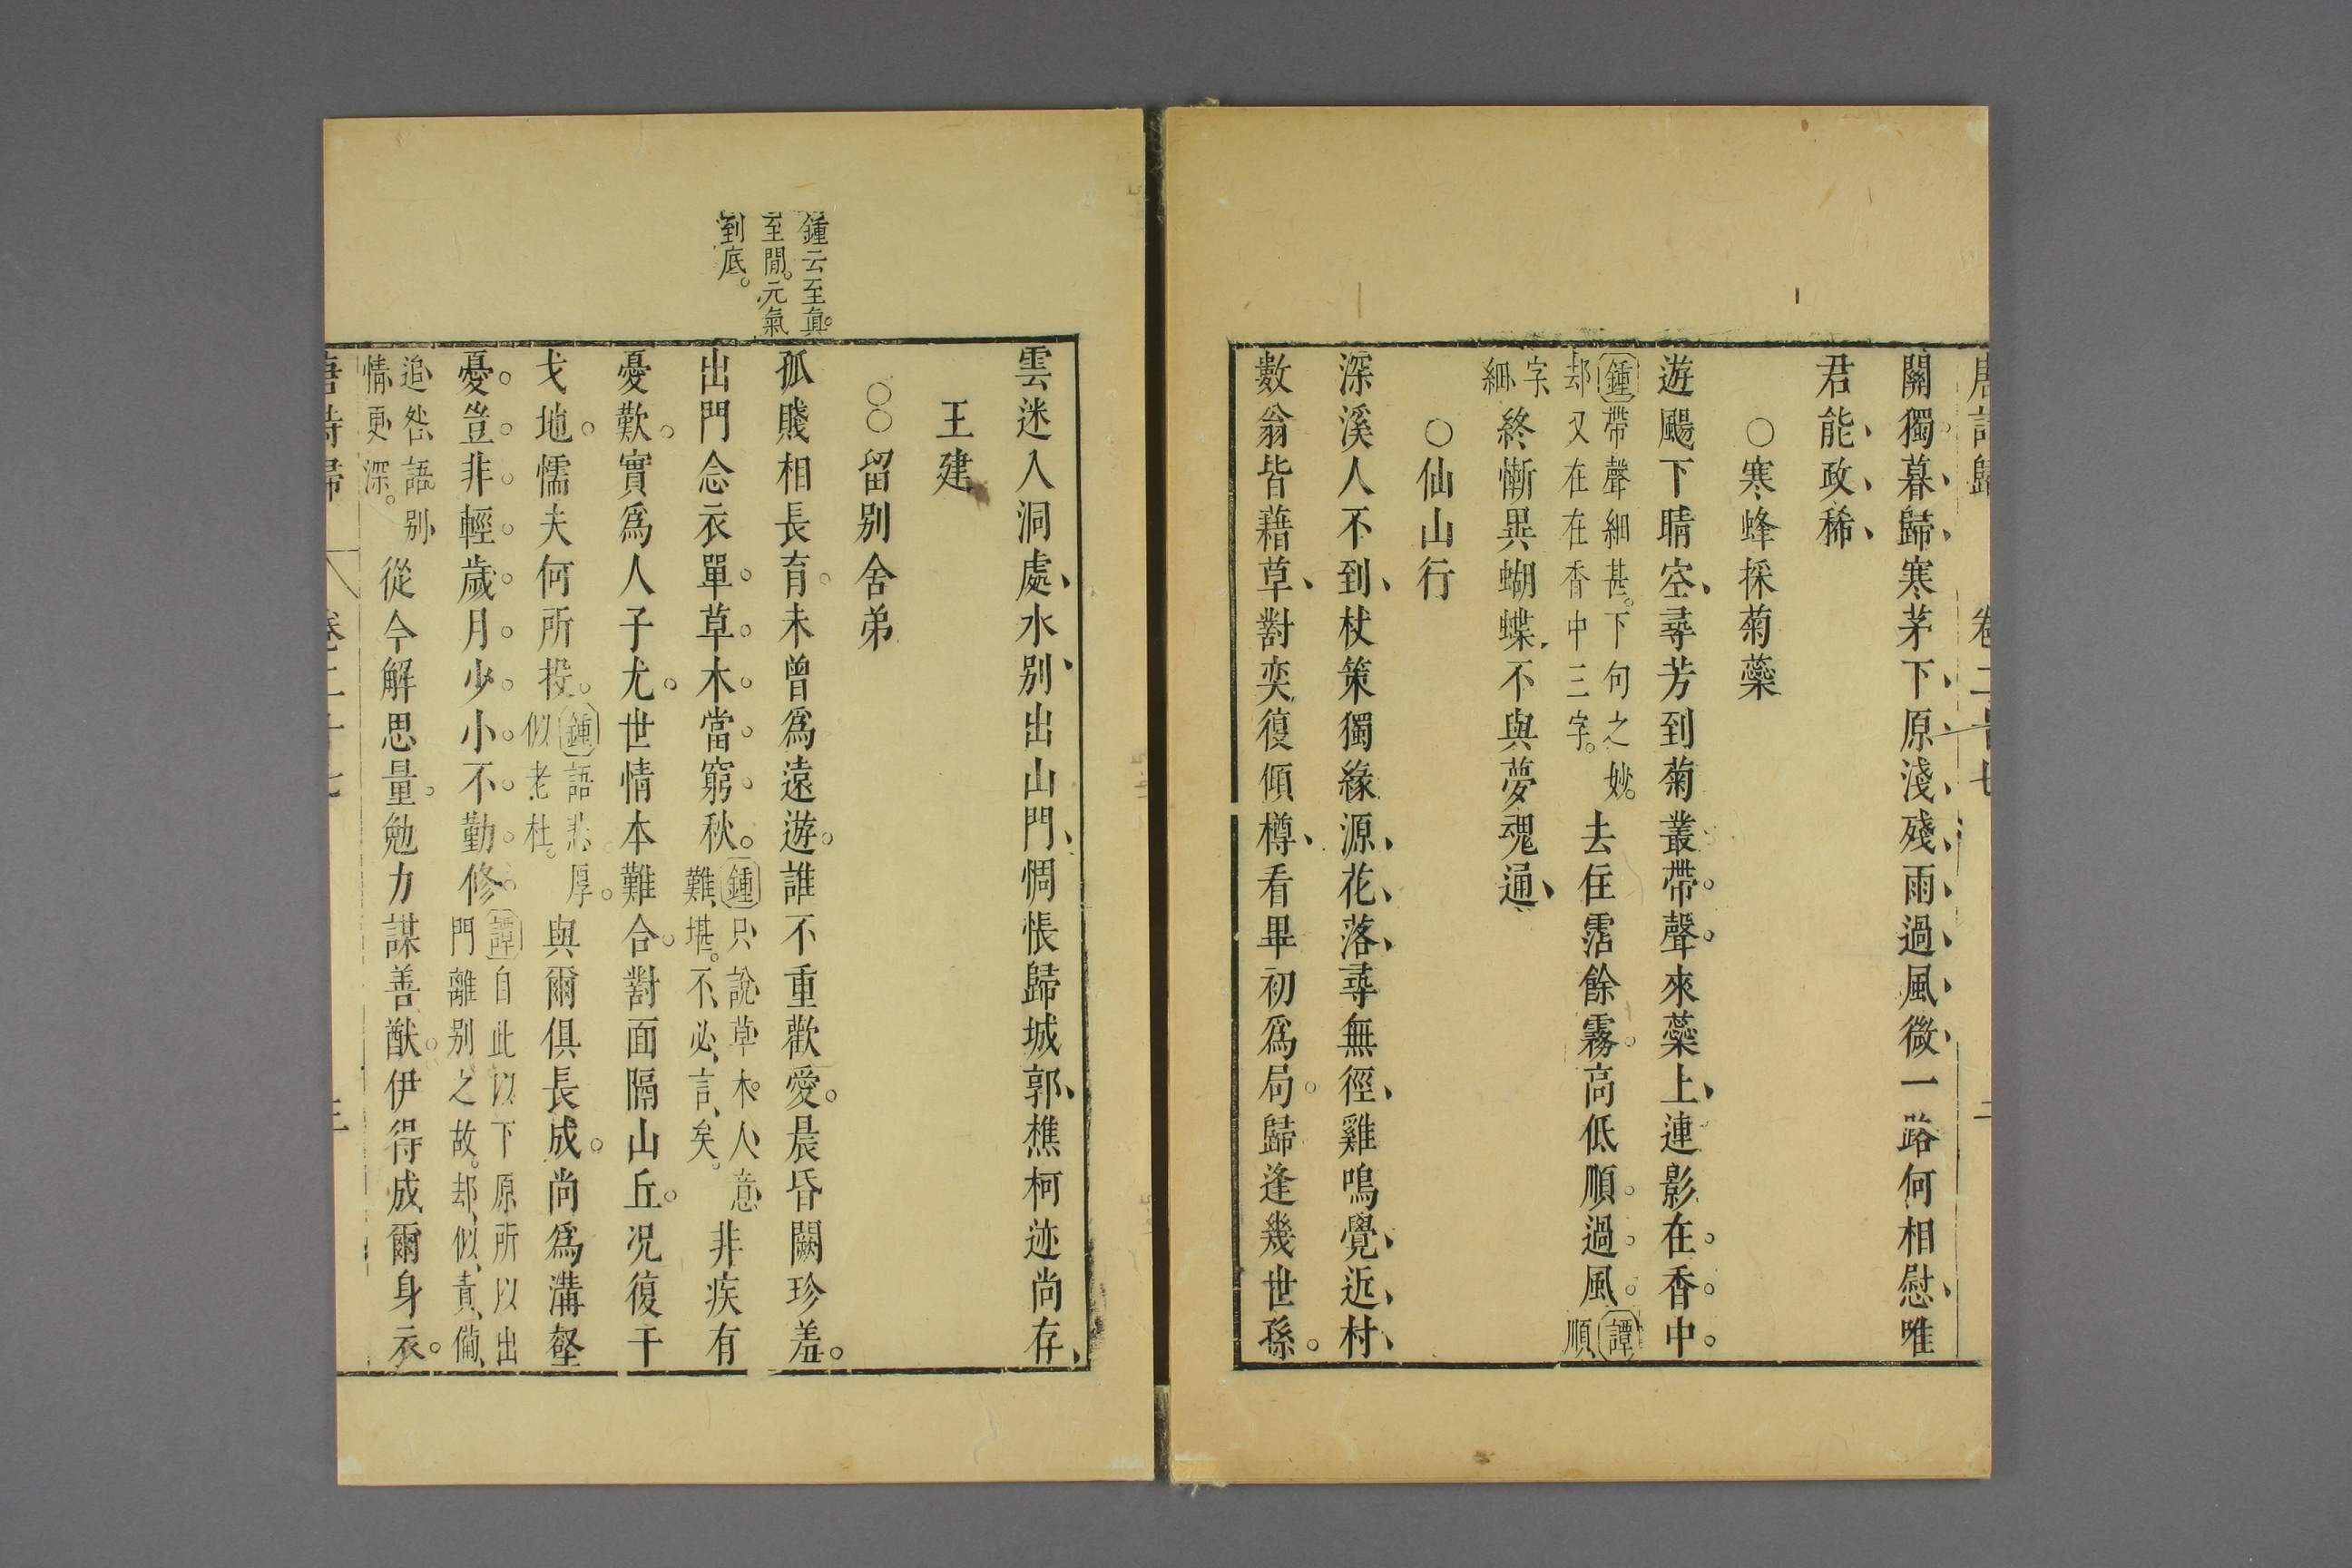 唐詩歸 卷二十七 二
關獨暮歸寒茅下原淺殘雨過風微一路何相慰唯
君能政稀
○寒蜂採菊蘂
遊颺下晴空尋芳到菊叢帶聲來蘂上連影在香中
鍾帶聲細甚。下句之妙。
却又在在香中三字。
去住霑餘霧高低順過風
譚順
字
細
終慚異蝴蝶不與夢魂通
○仙山行
深溪人不到杖策獨緣源花落尋無徑雞鳴覺近村
數翁皆藉草對奕復傾樽看畢初爲局歸逢幾世孫
雲迷入洞處水別出山門惆悵歸城郭樵柯迹尚存
王建
○○留別舍弟
鍾云至眞。
至閒。元氣
到底。
孤賤相長育未曾爲遠遊誰不重歡愛晨昏闕珍羞
出門念衣單草木當窮秋
鍾只說草木人意
難堪。不必言矣。
非疾有
憂歎實爲人子尤世情本難合對面隔山丘况復干
戈地懦夫何所投
鍾語悲厚。
似老杜。
與爾俱長成尚爲溝壑
憂豈非輕歲月少小不勤修
譚自此以下原所以出
門離別之故。却似責備
追咎語別
情更深。
從今解思量勉力謀善猷伊得成爾身衣
唐詩歸 卷二十七 三